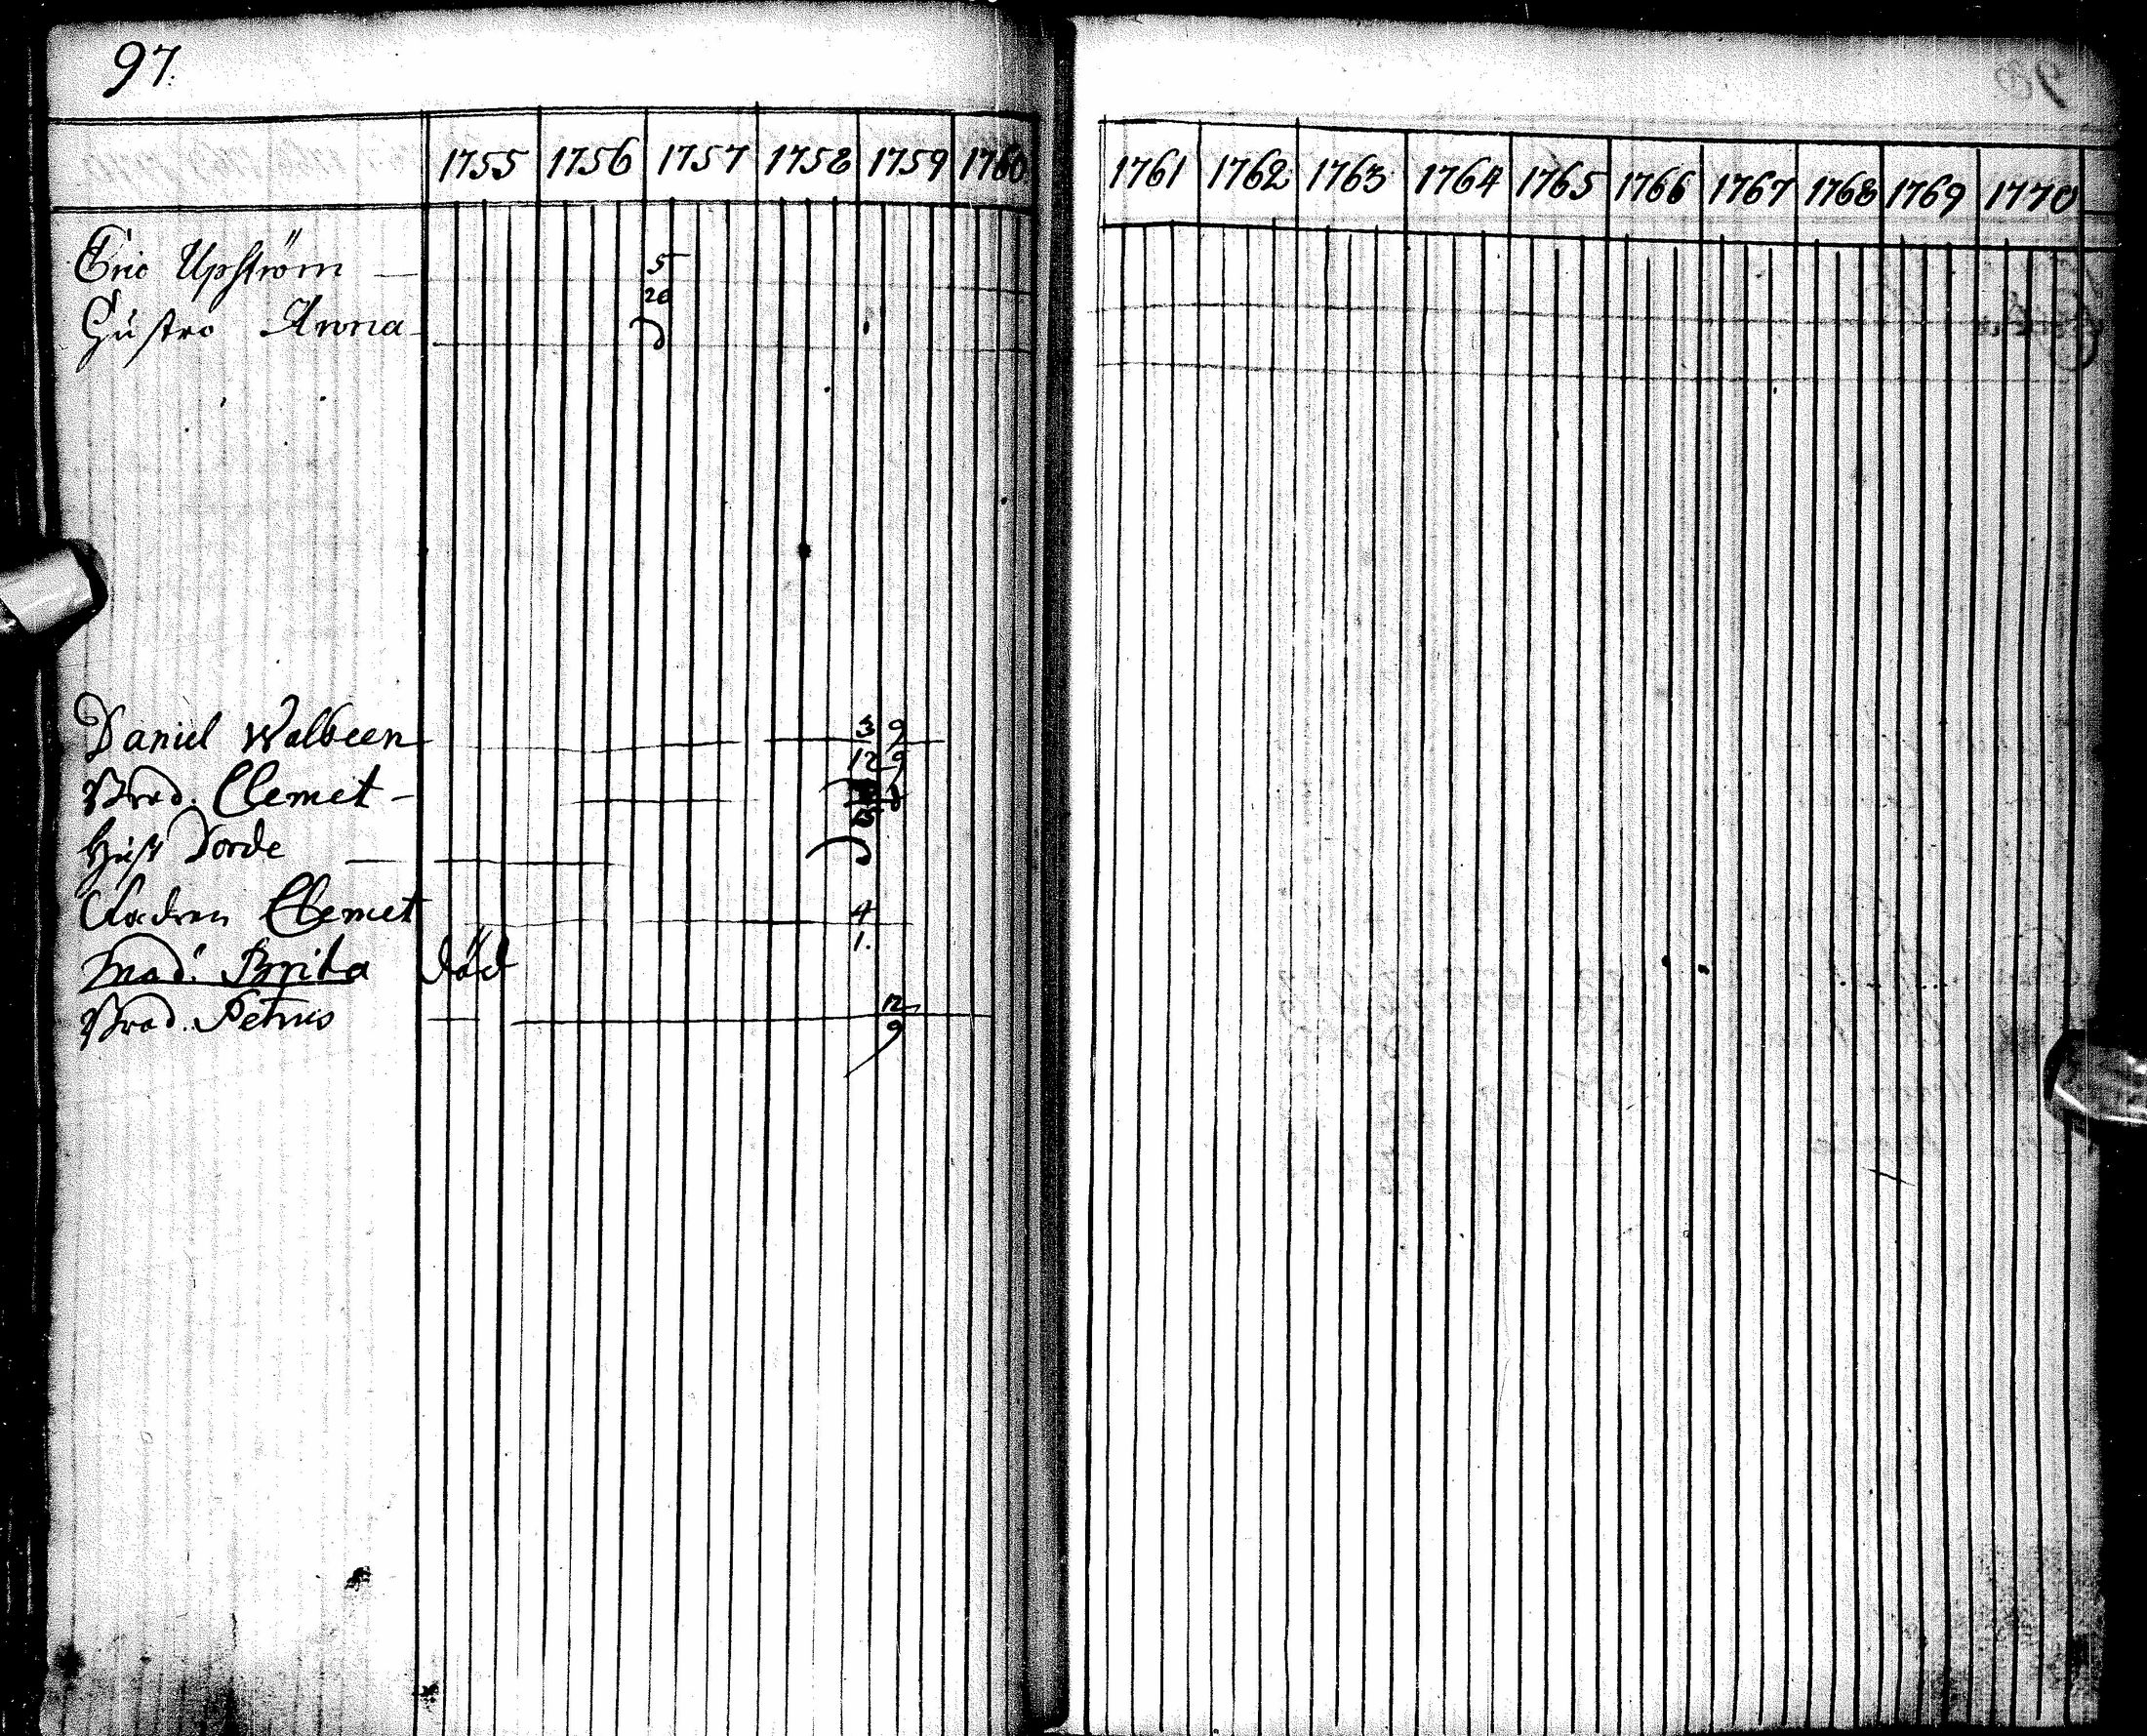 97.
1755 1756 1757 1758 1759 1760 1761 1762 1763 1764 1765 1766 1767 1768 1769 1770
Eric Upström 5
20
Hustro Anna
Daniel Walbeen 3 9
12 9
Brod. Clemet
Hust Dorde
Clemet 4
1.
Mod: Brita död
Brod. Petrus 12
9